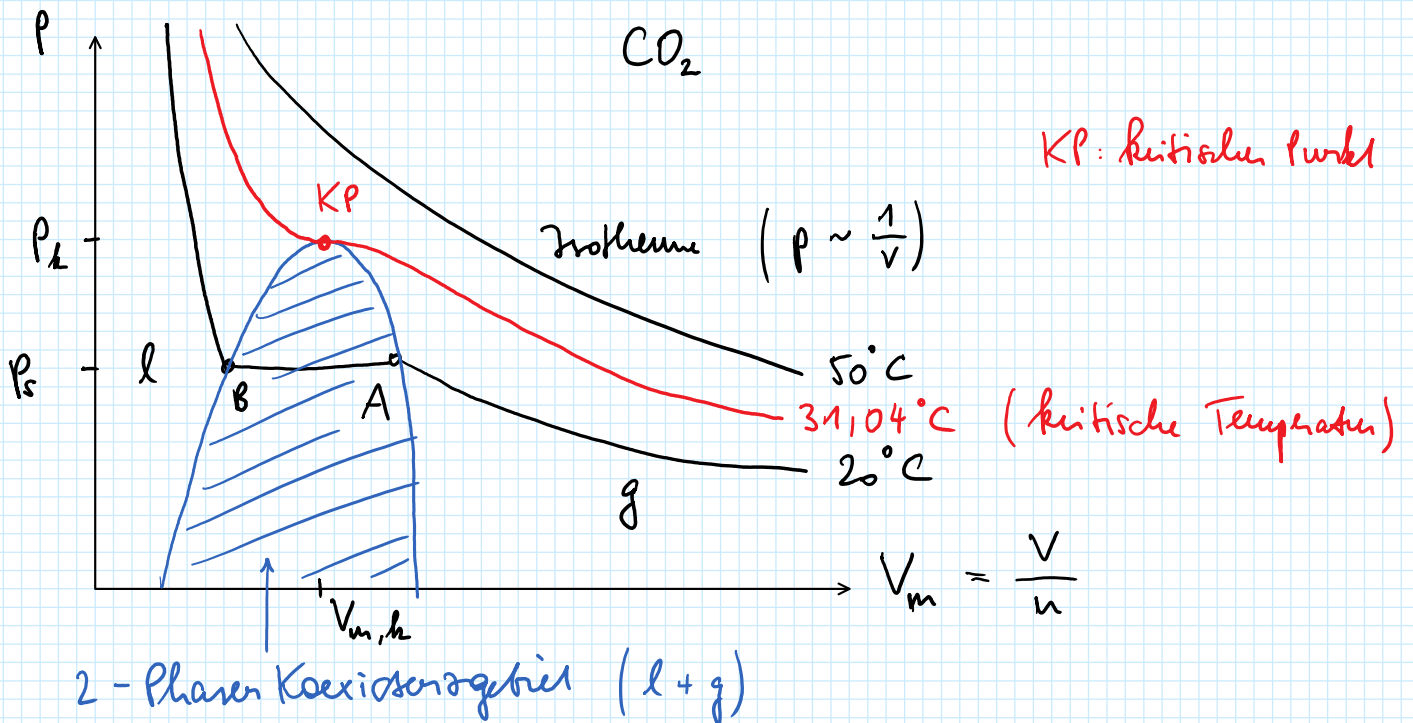 P
CO₂
KP: kritischer Punkt
KP
Pₖ
Isotherme (p ~ 1/V)
Pₛ
l
B
A
50°C
31,04°C (kritische Temperatur)
20°C
g
Vₘ = V/n
Vₘ,ₖ
2-Phasen Koexistenzgebiet (l + g)